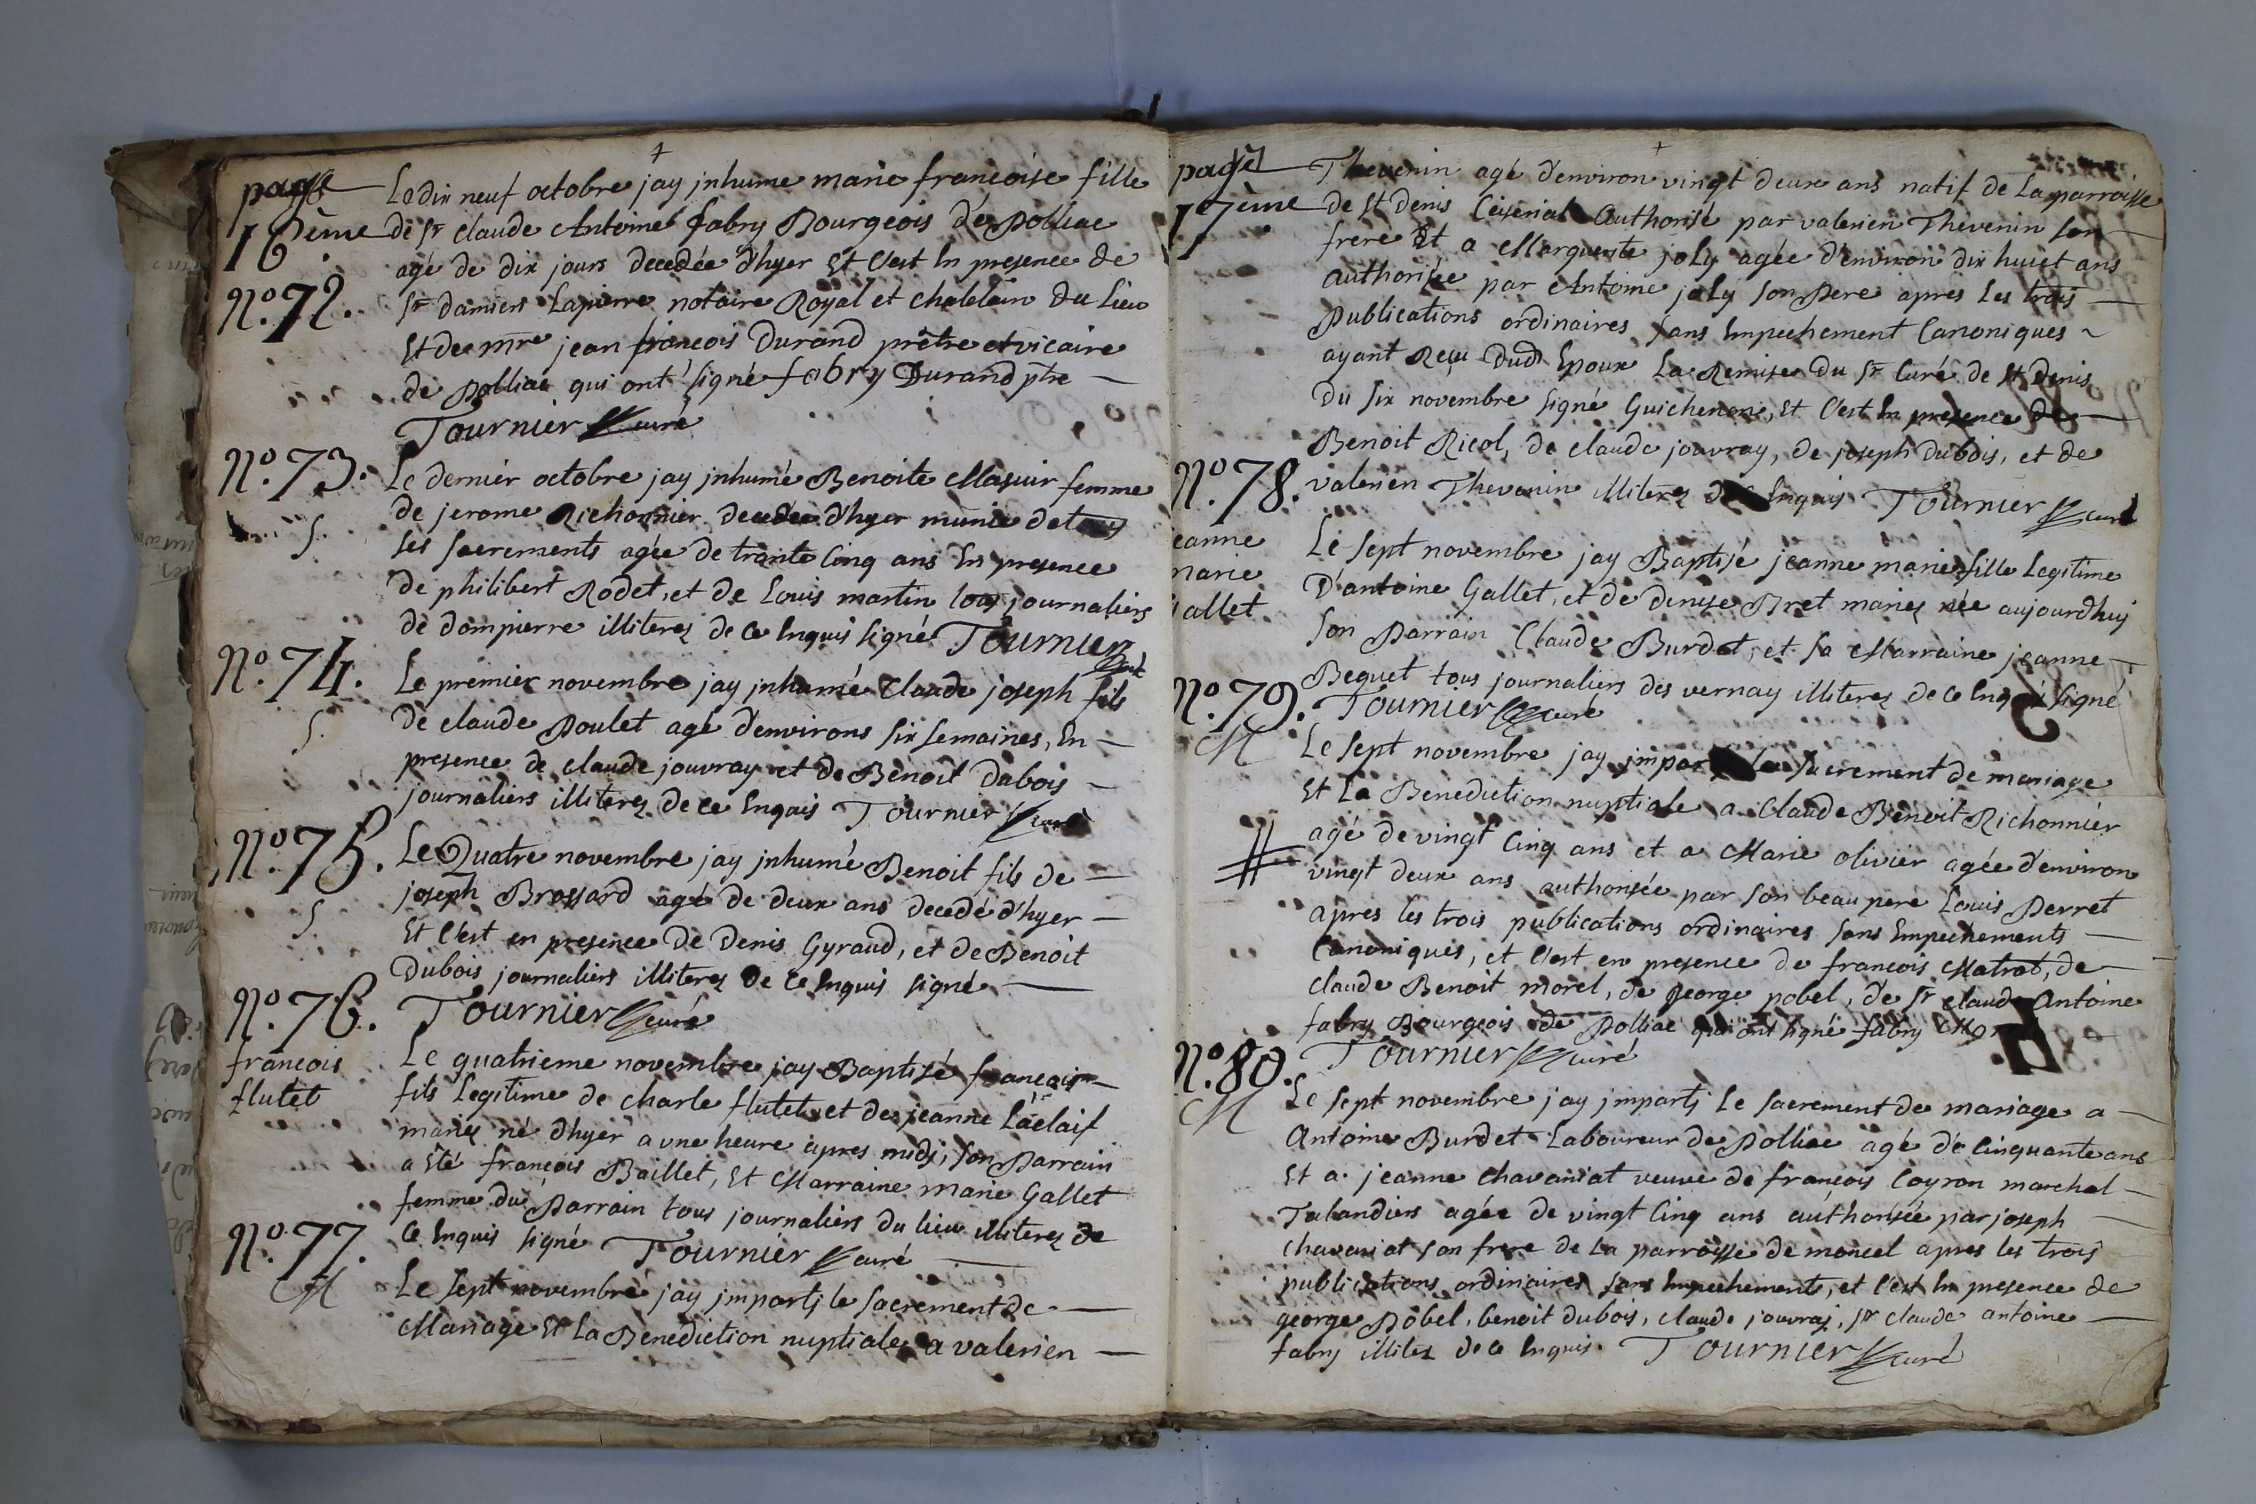 page
16ème
Le dix neuf octobre jay jnhume marie francoise fille
de Sr claude Antoine fabry Bourgeois de Polliac
agé de dix jours decedée d'hyer Et C'est En presence de
N°. 72.
Sr damiens Lapierre notaire Royal et chatelain du Lieu
Et de mre jean francois Durand prêtre et vicaire
de polliac qui ont signé fabry Durand ptre
Tournier curé
N°. 73.
Le dernier octobre jay jnhumé Benoite Masuir femme
de jerome Richonnier decedée d'hyer munie de tous
S.
Les sacrements agée de trante Cinq ans En presence
de philibert Rodet, et de Louis martin tous journaliers
de dompierre illiterez de Ce Enquis signé Tournier
curé
N°. 74.
Le premier novembre jay jnhumé Claude joseph fils
de claude Poulet agé d'environs six semaines, En
S.
presence de claude jouvray et de Benoit Dubois
journaliers illiterez de ce Enquis Tournier curé
N°. 75.
Le Quatre novembre jay jnhumé Benoit fils de
joseph Brossard agé de deux ans decedé d'hyer
S.
Et C'est en presence de Denis Gyraud, et de Benoit
Dubois journaliers illiterez de Ce Enquis signé
N°. 76.
Tournier curé
francois
flutet
Le quatrieme novembre jay Baptisé francois
fils Legitime de charle flutet et de jeanne
mariez né d'hyer a une heure apres midj, son Parrain
a Eté francois Baillet, Et Marraine marie Gallet
femme du Parrain tous journaliers du lieu illiterez de
Ce Enquis signé Tournier curé
N°. 77.
M
Le sept novembre jay impartj le sacrement de
Mariage Et La Benediction nuptiale a valerien
page
17ème
Thevenin agé d'environ vingt deux ans natif de La parroisse
de St denis Ceiseriat Authorisé par valerien Thevenin son
frere Et a Marguerite joly agée d'environ dix huict ans
authorisée par Antoine joly son Pere apres Les trois
Publications ordinaires sans Empechement Canoniques
ayant Reçu Dud Epoux La Remise du Sr Curé de St Denis
du six novembre signé Guichenon, Et C'est En presence de
Benoit Ricol, de claude jouvray, de joseph Dubois, et de
valerien Thevenin illiterez de Enquis Tournier curé
N°. 78.
eanne
marie
Gallet
Le sept novembre jay Baptisé jeanne marie fille Legitime
D'antoine Gallet, et de denise Bret mariez née aujourdhuy
son Parrain Claude Burdet, et sa Marraine jeanne
Bequet tous journaliers des vernay illiterez de Ce signé
N°. 79.
Tournier curé
M
Le sept novembre jay sacrement de mariage
Et La Benediction nuptiale a Claude Benoit Richonnier
agé de vingt Cinq ans et a Marie olivier agée d'environ
vingt deux ans authorisée par son beau pere Louis Perret
apres les trois publications ordinaires sans Empechements
Canoniques, et C'est en presence de francois Matrat, de
claude Benoit morel, de george pobel, de Sr claude Antoine
fabry Bourgeois de Polliac qui ont signé fabry
N°. 80.
Tournier curé
M
Le sept novembre jay impartj Le sacrement de mariage a
Antoine Burdet Laboureur de Polliac agé de Cinquante ans
Et a jeanne chavaniat veuve de francois Coyron marchal
Talandiers agée de vingt Cinq ans authorisée par joseph
chavaniat son frere de La parroisse de moncel apres les trois
publications ordinaires sans Empechements, et C'est En presence de
george Pobel, benoit dubois, claude jouvraj, Sr claude antoine
fabry illitez de Ce Enquis. Tournier curé